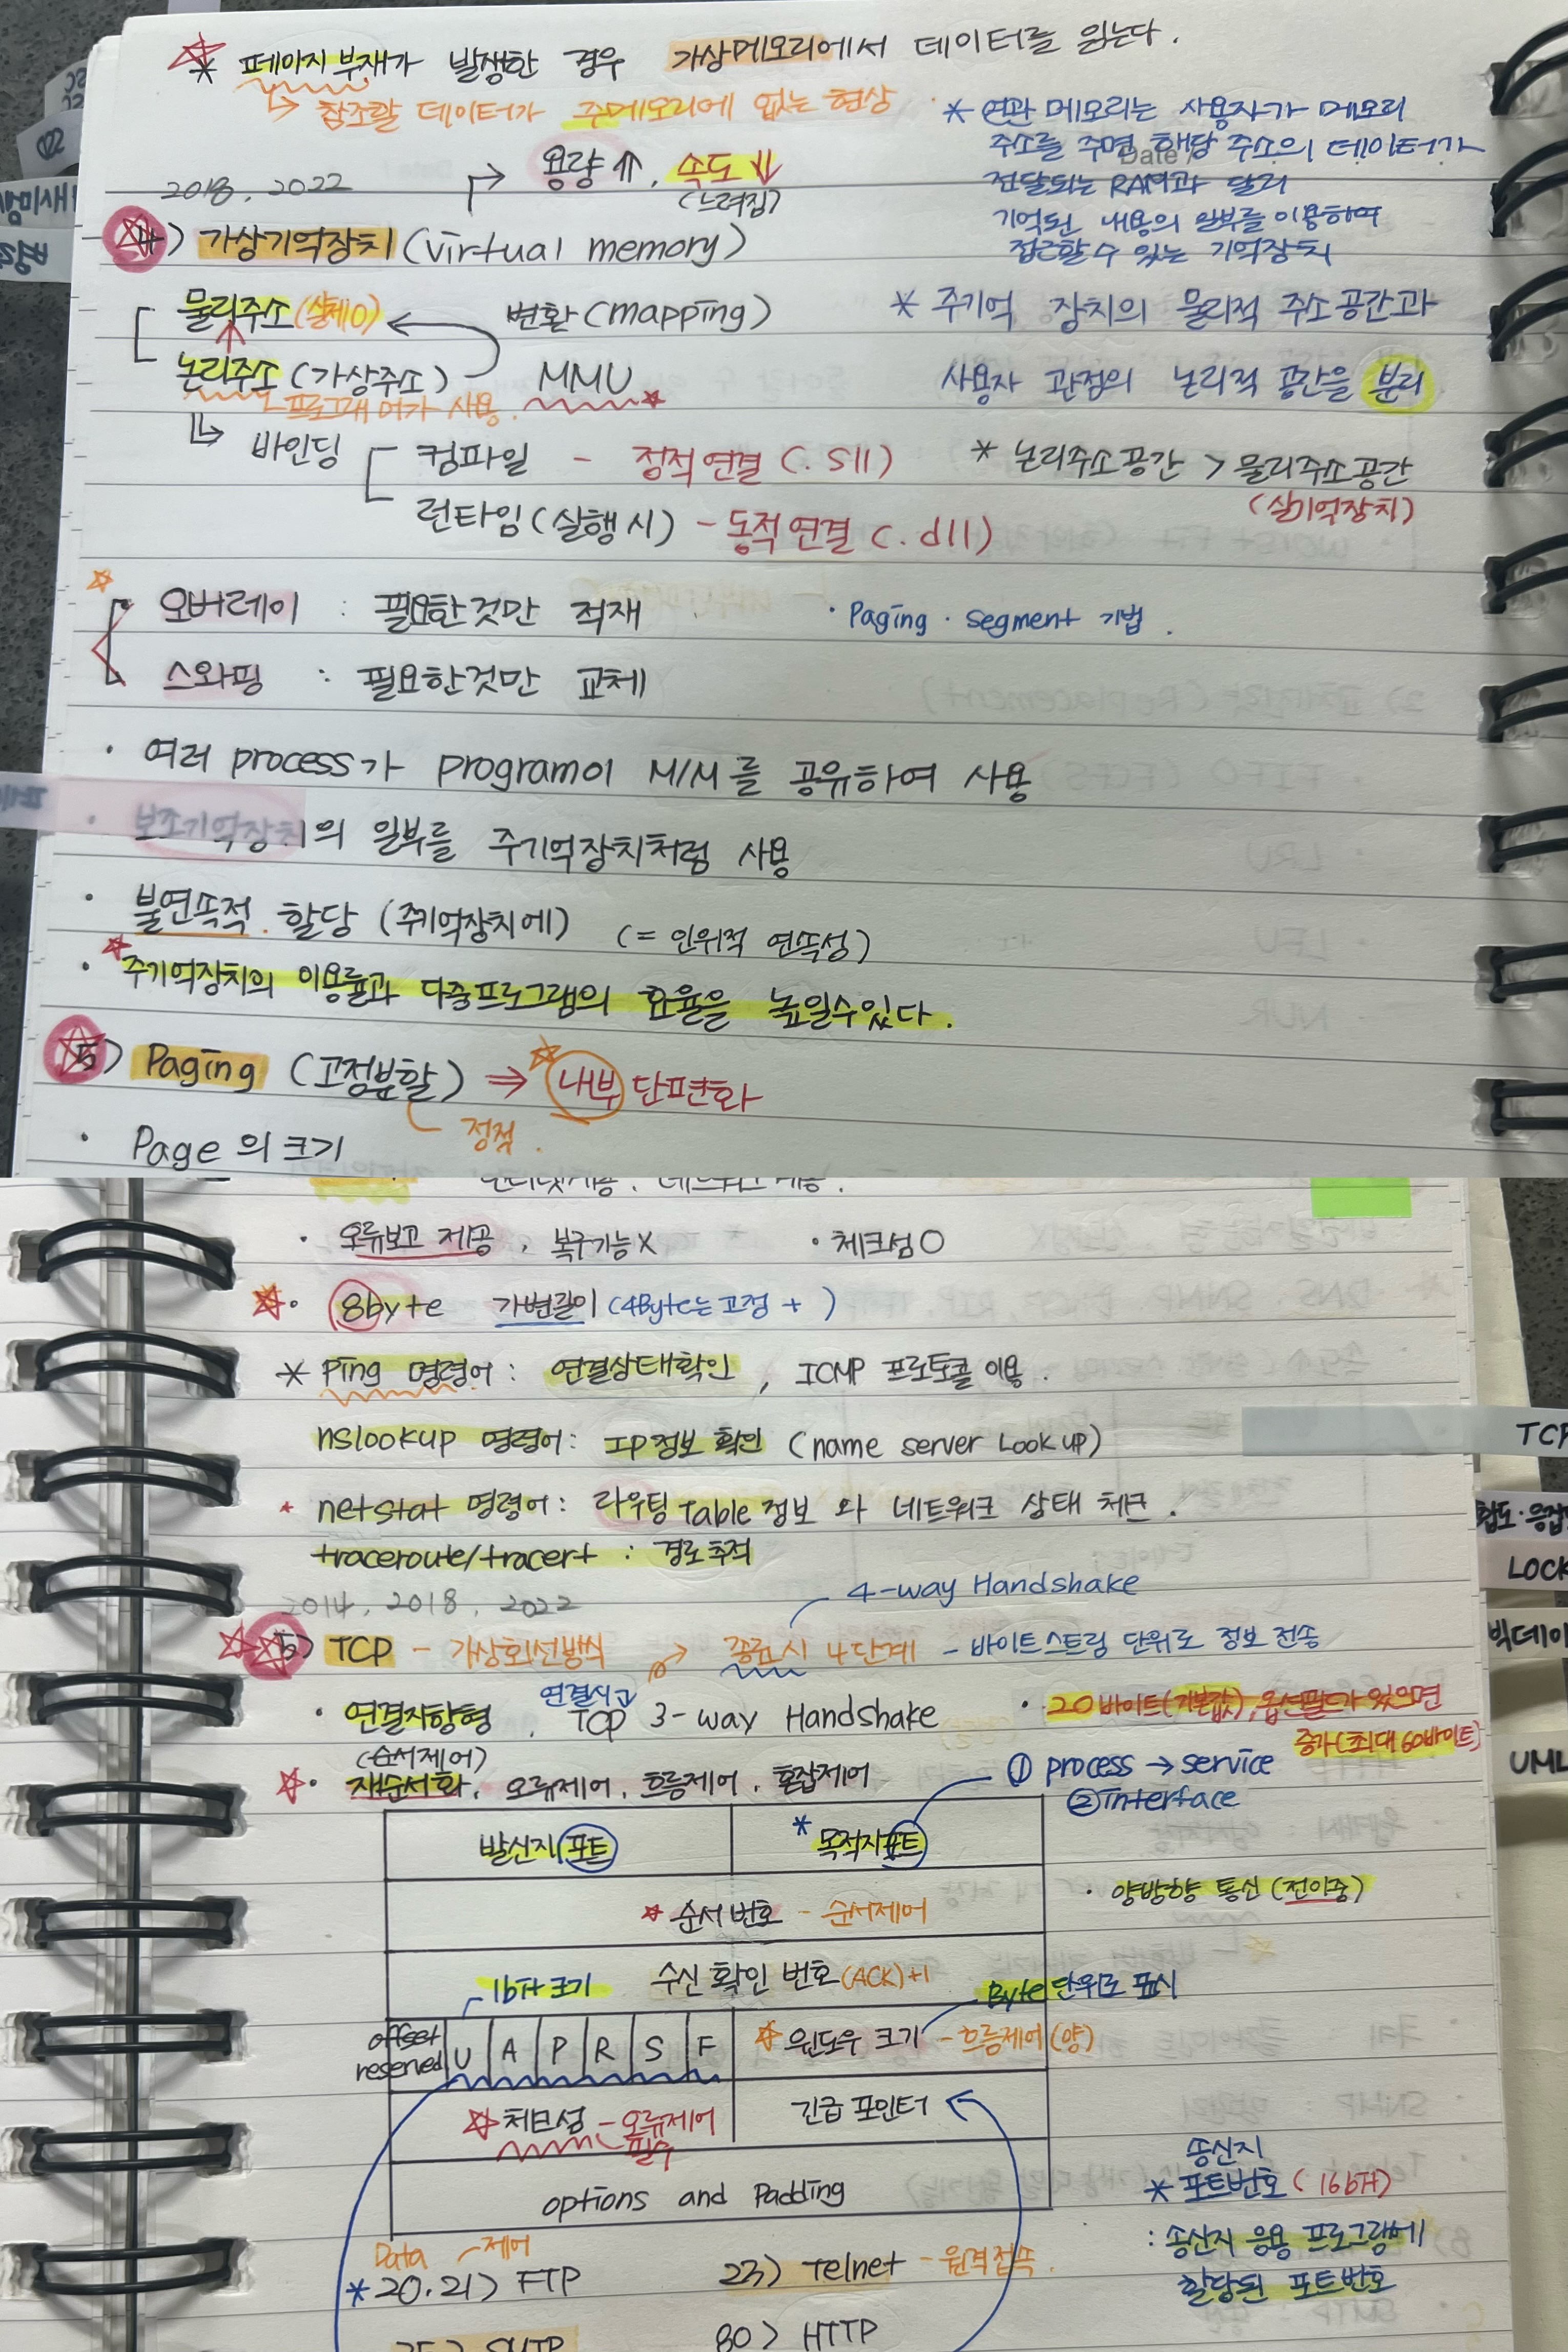 * 페이지 부재가 발생한 경우 가상메모리에서 데이터를 읽는다.
↳ 참조할 데이터가 주메모리에 없는 현상
* 연관 메모리는 사용자가 메모리
주소를 주면 해당 주소의 데이터가
전달되는 RAM과 달리
기억된 내용의 일부를 이용하여
접근할 수 있는 기억장치
Date
→ 용량 ↑, 속도 ↓
(느려짐)
2018, 2022
4) 가상기억장치 (virtual memory)
물리주소 (실제0)
변환 (mapping)
논리주소 (가상주소)
MMU
프로그래머가 사용.
* 주기억 장치의 물리적 주소공간과
사용자 관점의 논리적 공간을 분리
↳ 바인딩
컴파일 - 정적연결 (.sll)
런타임 (실행시) - 동적연결 (.dll)
* 논리주소공간 > 물리주소공간
(실기억장치)
오버레이 : 필요한것만 적재
· Paging · segment 기법.
스와핑 : 필요한것만 교체
· 여러 process가 program이 M/M를 공유하여 사용
· 보조기억장치의 일부를 주기억장치처럼 사용
· 불연속적. 할당 (주기억장치에) (= 인위적 연속성)
· 주기억장치의 이용률과 다중프로그램의 효율을 높일수있다.
5) Paging (고정분할) ⇒ 내부 단편화
정적.
· Page 의 크기
· 오류보고 제공, 복구기능X
· 체크섬 O
· 8byte 가변길이 (4Byte는 고정 + )
* Ping 명령어 : 연결상태확인, ICMP 프로토콜 이용.
nslookup 명령어 : IP정보 확인 (name server Look up)
netstat 명령어 : 라우팅 Table 정보 와 네트워크 상태 체크.
traceroute/tracert : 경로추적
TCP
LOCK
UML
2014, 2018, 2022
4-way Handshake
5) TCP - 가상회선방식 → 종료시 4단계 - 바이트스트림 단위로 정보 전송
· 연결지향형, 연결시 TCP 3-way Handshake
(순서제어)
· 20바이트(기본값), 옵션필드가 있으면
증가(최대 60바이트)
· 재순서화, 오류제어, 흐름제어, 혼잡제어
① process → service
② Interface
발신지 포트
* 목적지 포트
· 양방향 통신 (전이중)
순서 번호 - 순서제어
수신 확인 번호 (ACK)+1
1bit 크기
Byte 단위로 표시
offset
reserved
U A P R S F
윈도우 크기 - 흐름제어 (양)
체크섬 - 오류제어
필수
긴급 포인터
options and Padding
송신지
* 포트번호 (16bit)
: 송신지 응용 프로그램에
할당된 포트번호
Data 제어
* 20.21) FTP
23) Telnet - 원격접속.
25) SMTP
80) HTTP